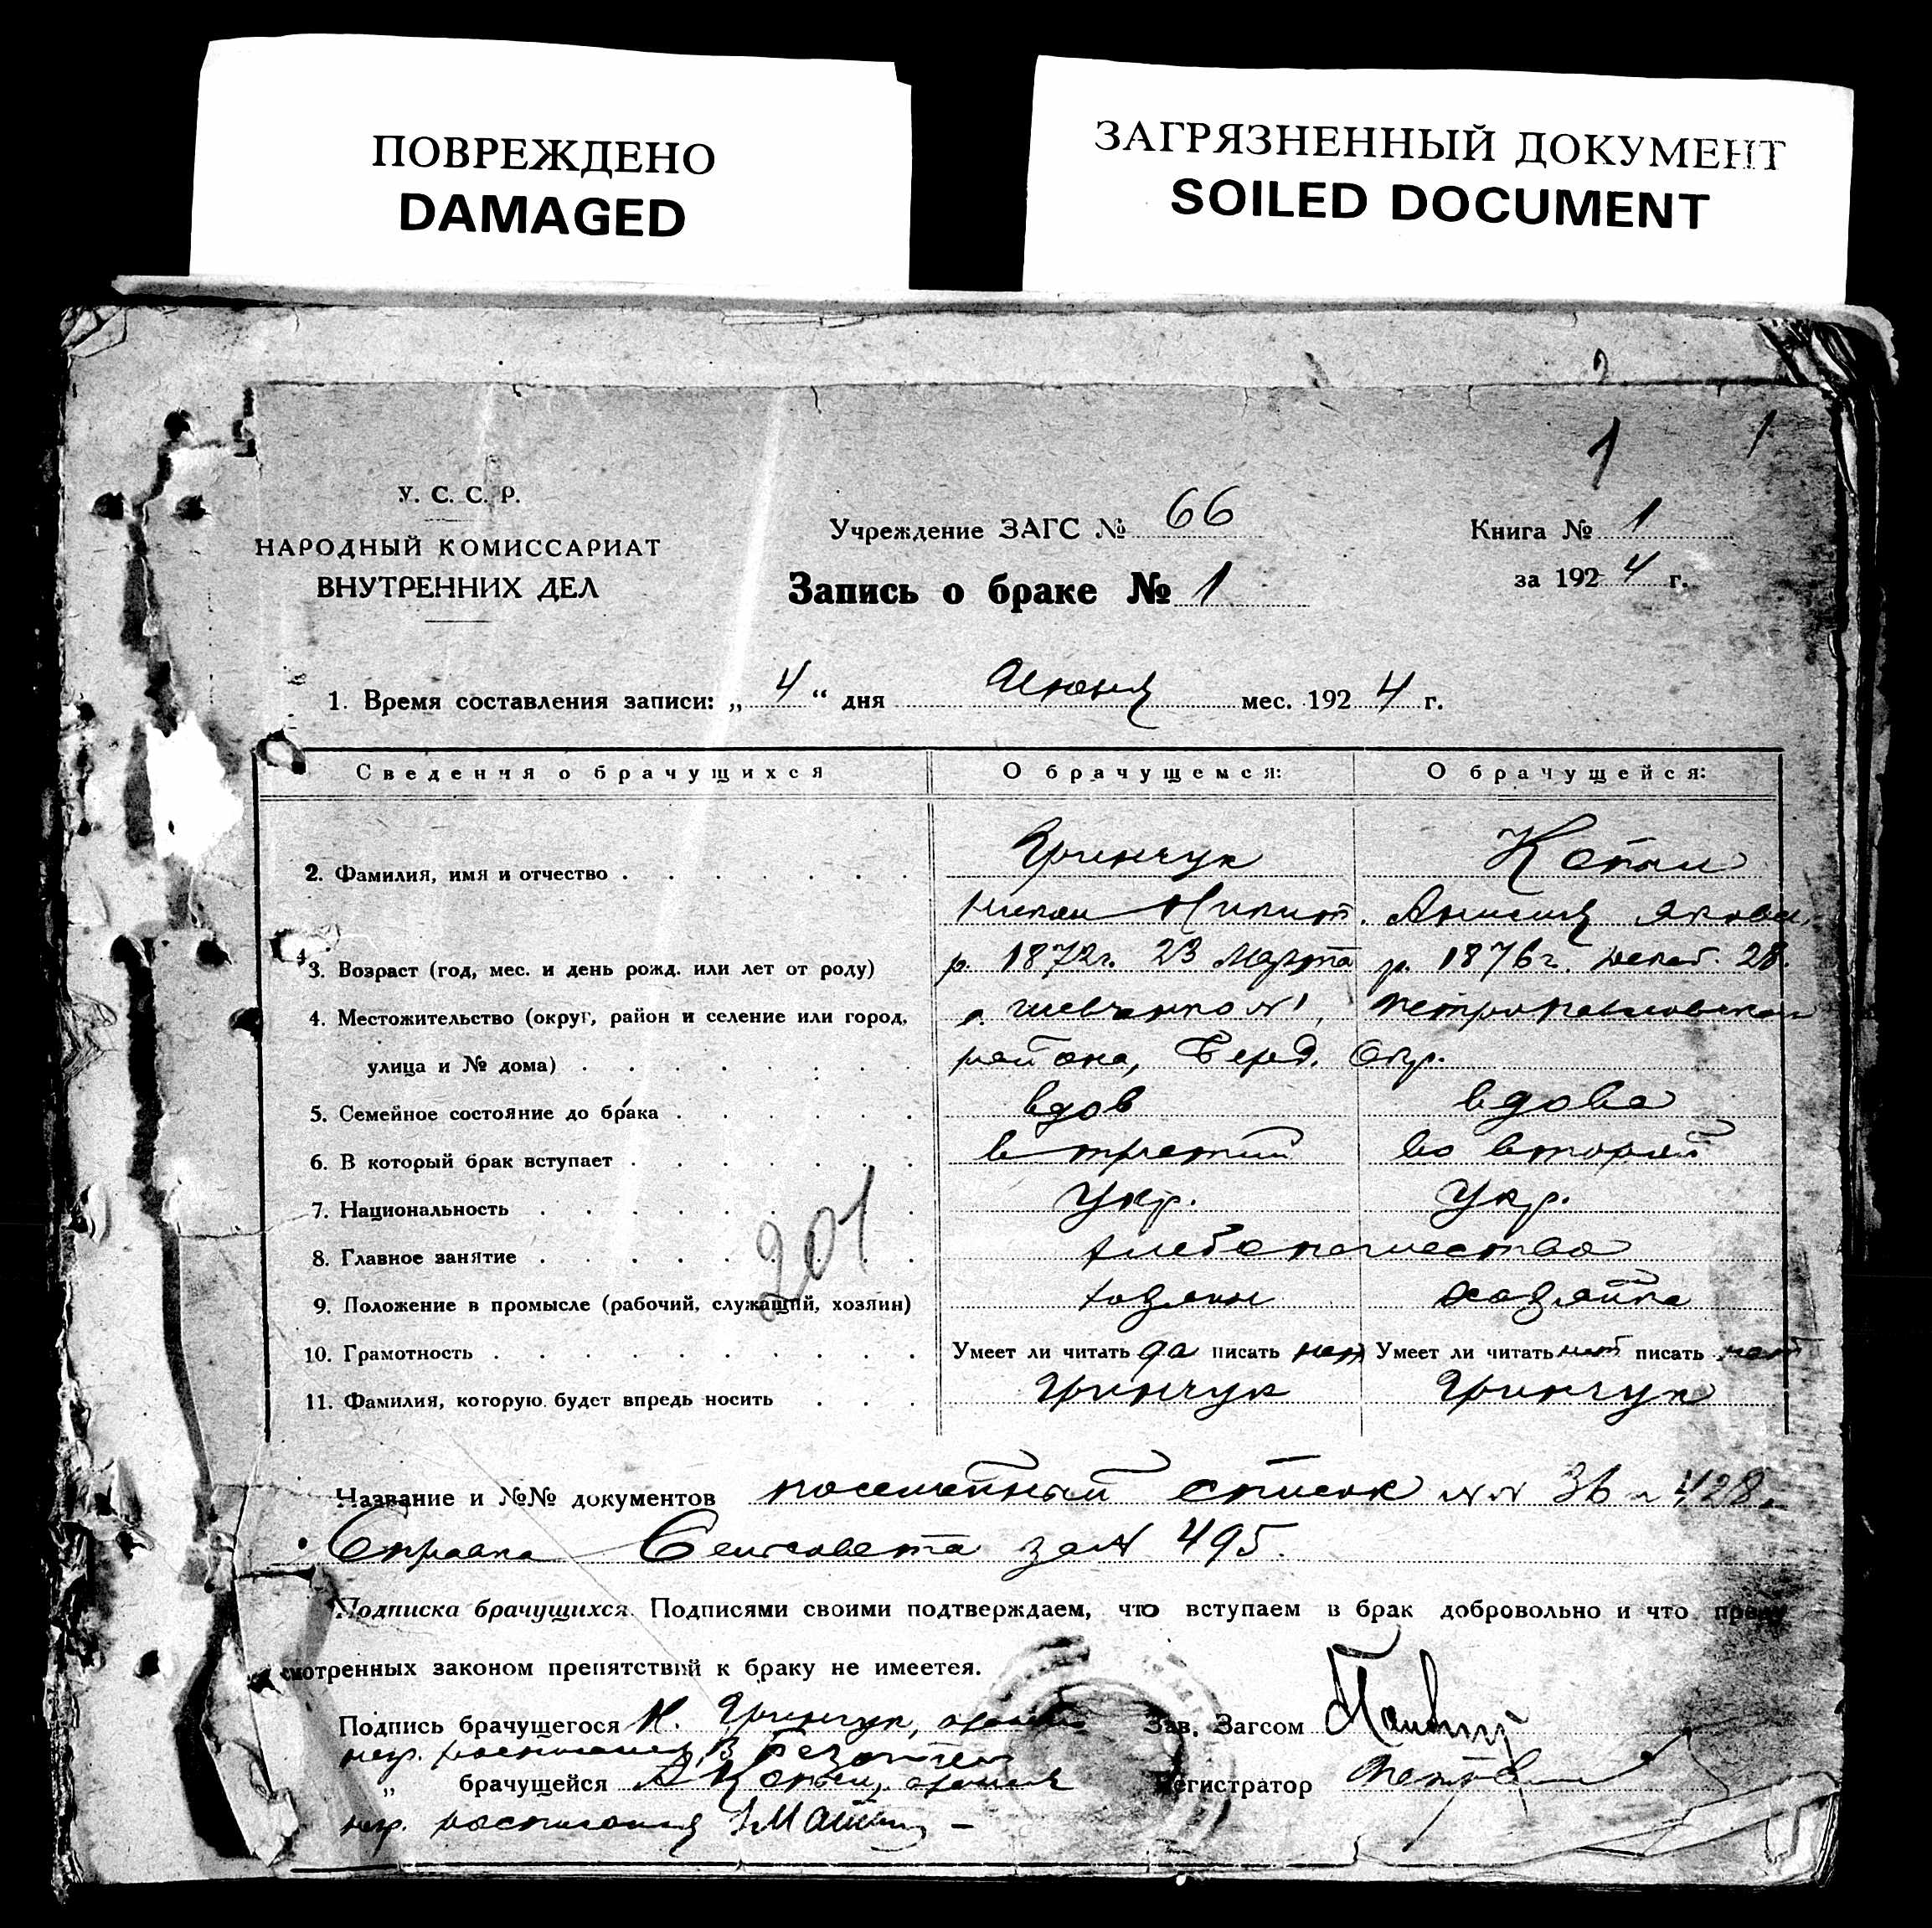 ПОВРЕЖДЕНО
DAMAGED
ЗАГРЯЗНЕННЫЙ ДОКУМЕНТ
SOILED DOCUMENT
1
1
У. С. С. Р.
НАРОДНЫЙ КОМИССАРИАТ
ВНУТРЕННИХ ДЕЛ
Учреждение ЗАГС № 66
Книга № 1
Запись о браке № 1
за 1924 г.
1. Время составления записи: „4“ дня Июня мес. 1924 г.
Сведения о брачущихся О брачущемся: О брачущейся:
2. Фамилия, имя и отчество Гринчук
Анисия Яковл.
3. Возраст (год, мес. и день рожд. или лет от роду) р. 1872г. 23 Марта р. 1876г. Декаб. 28.
4. Местожительство (округ, район и селение или город, с. Шевченко №1, Петропавловского
улица и № дома) района, Берд. Окр.
5. Семейное состояние до брака вдов вдова
6. В который брак вступает в третий во второй
7. Национальность Укр. Укр.
8. Главное занятие хлебопашество
9. Положение в промысле (рабочий, служащий, хозяин) хозяин хозяйка
201
10. Грамотность Умеет ли читать да писать нет Умеет ли читать нет писать нет
11. Фамилия, которую будет впредь носить Гринчук Гринчук
Название и №№ документов посемейный список №№ 36 и 428.
Справка Сельсовета за № 495.
Подписка брачущихся. Подписями своими подтверждаем, что вступаем в брак добровольно и что преду
смотренных законом препятствий к браку не имеется.
Подпись брачущегося Н. Гринчук,
Зав. Загсом
негр. расписался
„ брачущейся А
Регистратор
негр. расписался